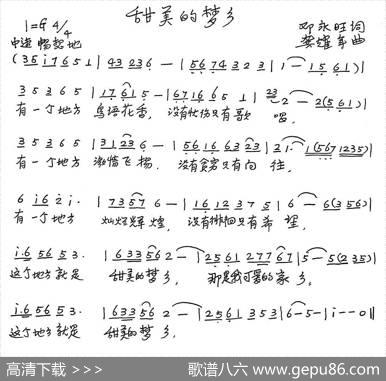 甜美的梦乡
1=G 4/4
邓永旺词
中速 幅
曲
(3 5 i 7 6 5 1 | 4 3 2 3 6 - | 5 6 7 4 3 2 3 | 1 - 1 5 6 1)|
3 5 3 6 5 | 1 7 6 1 5 - | 6 7 1 6 6 5 1 | 2 - 2(5 6 1)|
有一个地方 鸟语花香, 没有忧伤只有歌唱,
3 5 3 6 5 | 3 1 2 3 6 - | 5 6 1 6 6 3 2 3 | 2 1· 1(5 6 7 1 2 3 5)|
有一个地方 激情飞扬, 没有贪穷只有向往,
6 i 6 2 i· | 7 3 5 7 6 - | 1 6 1 2 3 7 5 | 6 - 6(3 5 6)|
有一个地方 灿烂辉煌, 没有徘徊只有希望,
i 6 5 6 5 3· | 6 3 3 5 6 2 - | 2 5 6 1 2 7 7 6 7 | 5 - 5(2 3 5)|
这个地方就是 甜美的梦乡, 那是我可爱的家乡。
i 6 5 6 5 3· | 6 3 3 5 6 2 - | 2 5 6 1 3 5 3 | 6 - 5 - | i - - 0 ‖
这个地方就是 甜美的梦乡,
高清下载 >>> 歌谱八六 www.gepu86.com